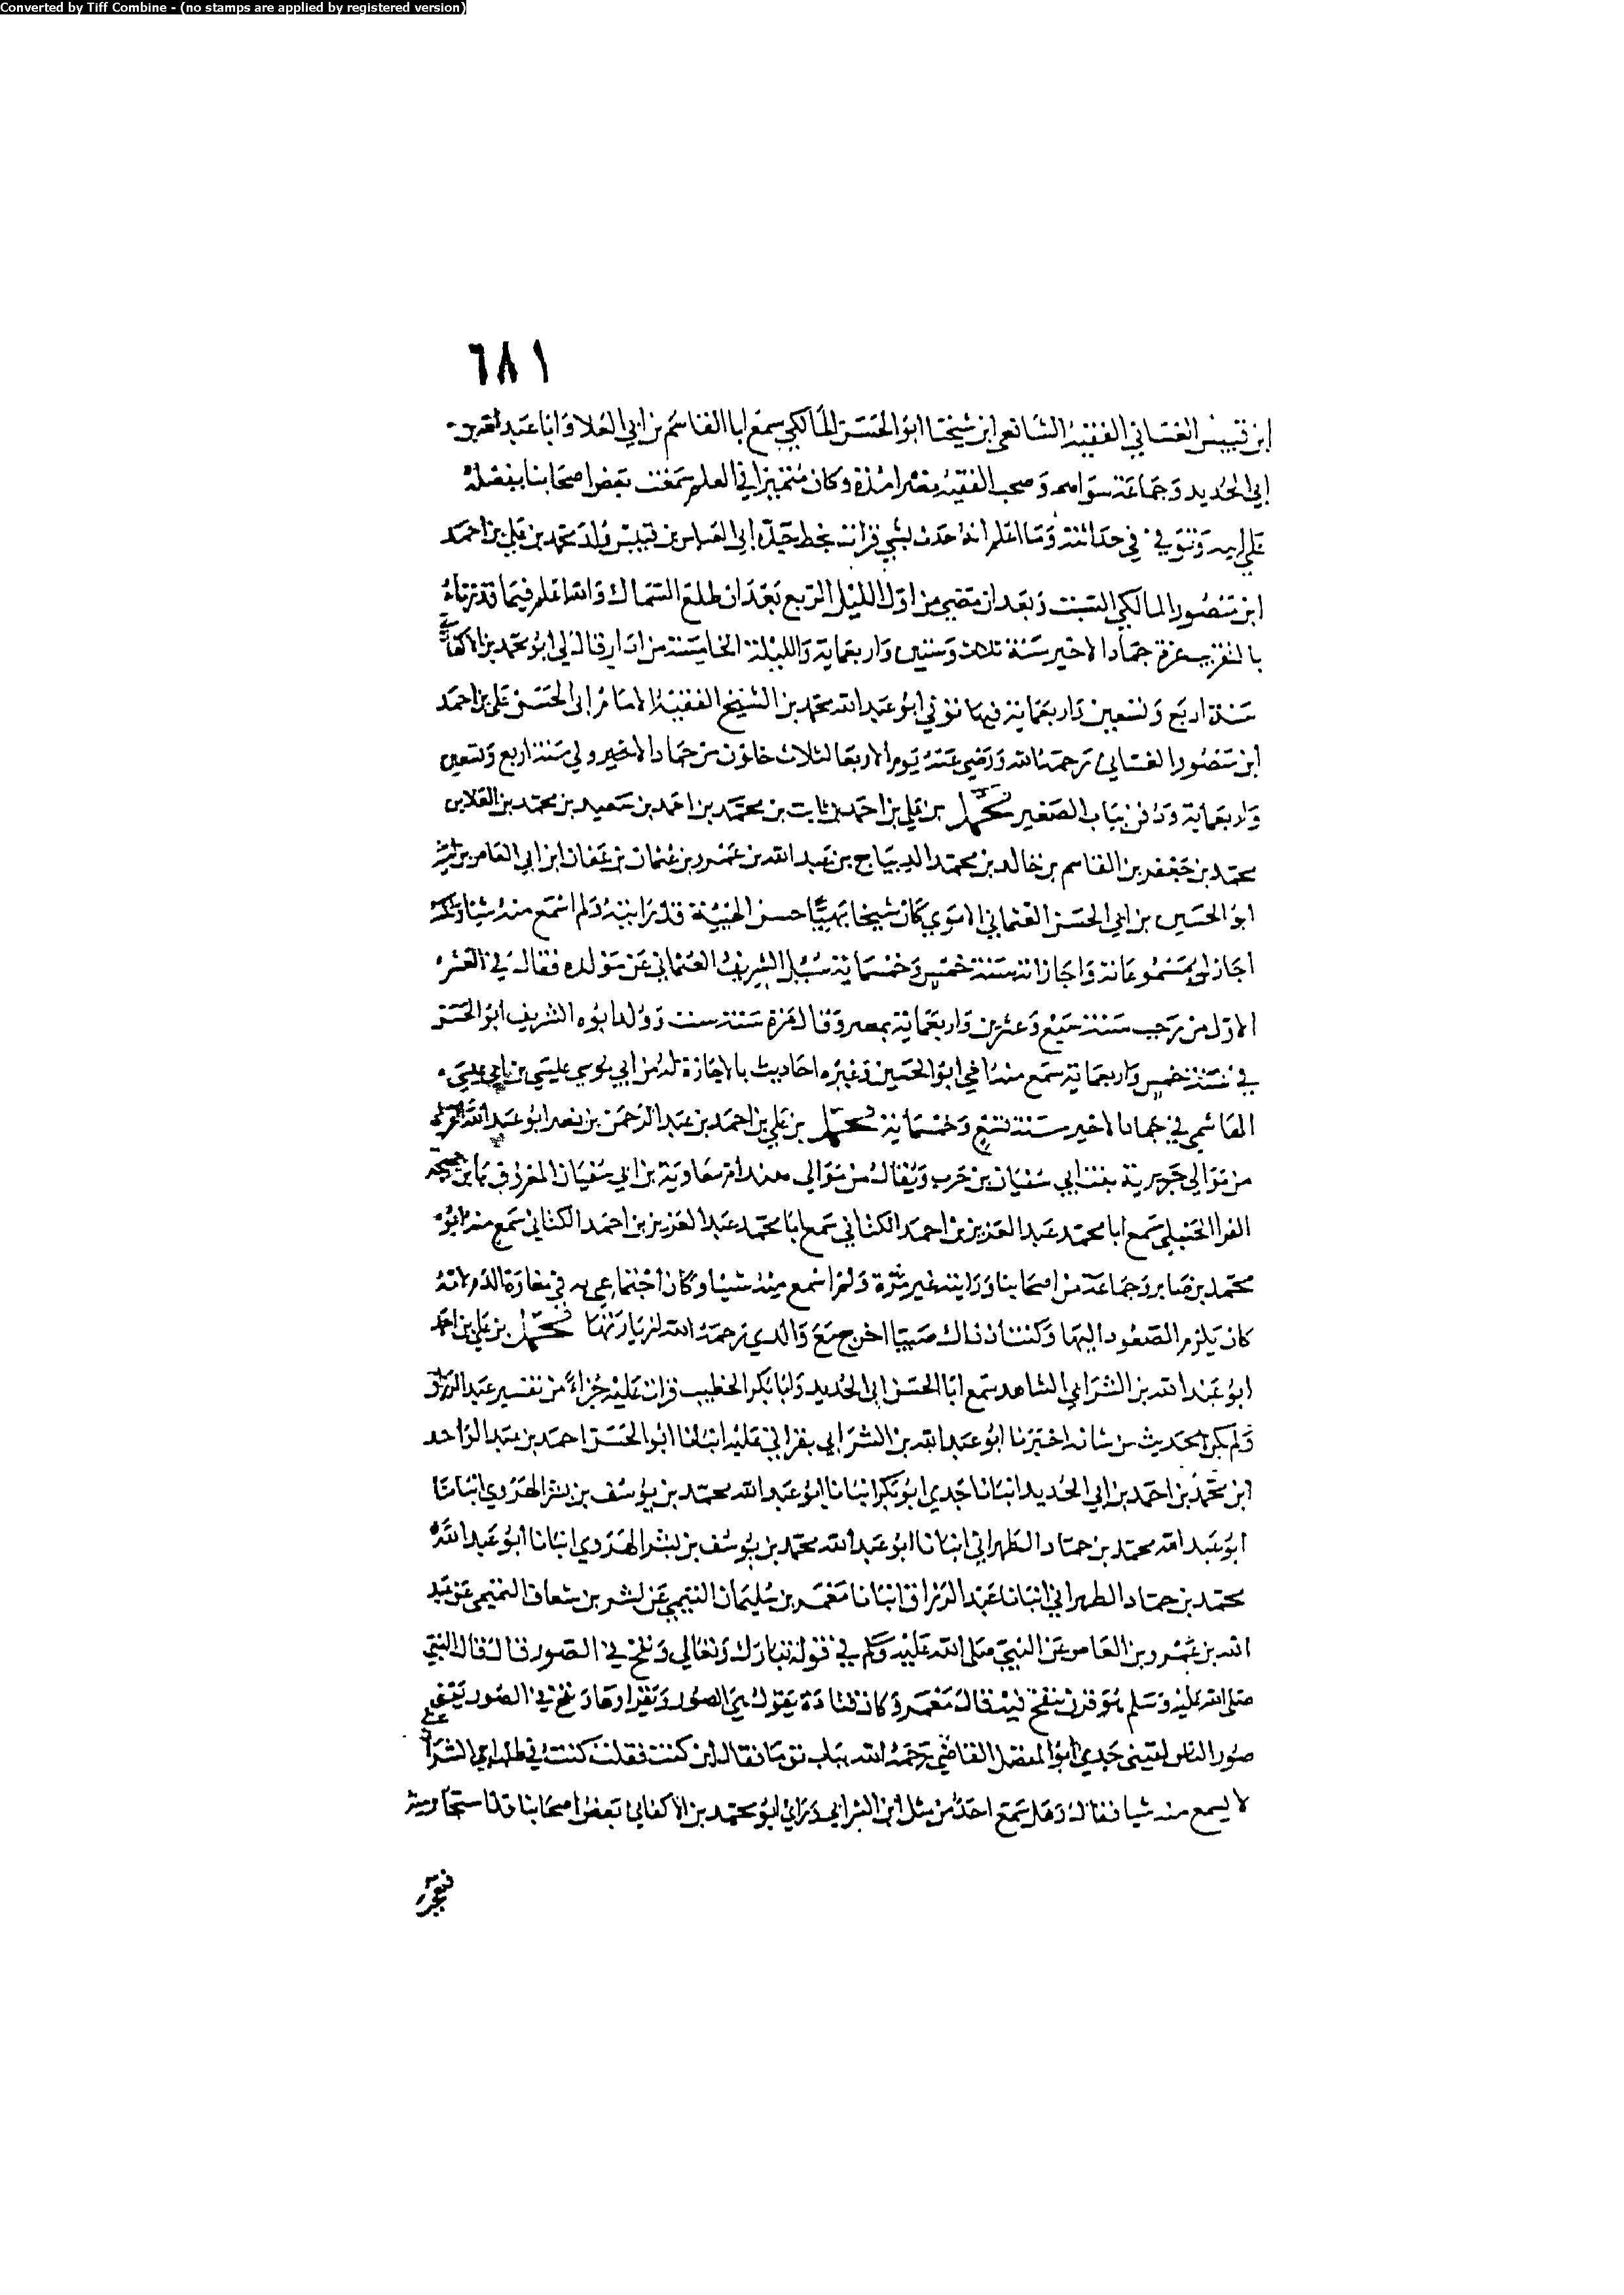 Converted by Tiff Combine - (no stamps are applied by registered version)
٦٨١
ابن قبيس الغساني الفقيه الشافعي ابن شيخنا ابو الحسن المالكي سمع ابا القاسم بن ابي العلا وابا عبد الله بن
ابي الحديد وجماعة سواهم وصحب الفقيه نصرا مدة وكان متميزا في العلم سمعت بعض اصحابنا يفضله
على ابيه وتوفي في حداثته وما اعلم انه حدث بشي قرات بخط جده ابي العباس بن قبيس ولد محمد بن علي بن احمد
ابن منصور المالكي السبت وبعد ان مضي من اول الليل الربع بعد ان طلع السماك والله اعلم فيما قدرناه
بالتقريب غرة جمادا الاخير سنة ثلاث وستين واربعماية والليلة الخامسة من اذار قال لي ابو محمد بن الاكفاني
سنة اربع وتسعين واربعماية فيها توفي ابو عبد الله محمد بن الشيخ الفقيه الامام ابي الحسن علي بن احمد
ابن منصور الغساني رحمه الله ورضي عنه يوم الاربعا لثلاث خلون من جمادا الاخير ولي سنة اربع وتسعين
واربعماية ودفن بباب الصغير محمد بن علي بن احمد بن ثابت بن محمد بن احمد بن سعيد بن محمد بن
محمد بن جعفر بن القاسم بن خالد بن محمد الديباج بن عبد الله بن عمرو بن عثمان بن عفان ابن ابي العاص بن
ابو الحسين بن ابي الحسن العثماني الاموي كان شيخا بهيا حسن الهيئة قد رايته ولم اسمع منه شيا
اجاز لي مسموعاته واجازاته سنة خمس وخمسماية سئل الشريف العثماني عن مولده فقال في العشر
الاول من رجب سنة سبع وعشرين واربعماية بمصر وقال مرة سنة ست وولد ابوه الشريف ابو الحسن
في سنة خمس واربعماية سمع منه اخي ابو الحسين وغيره احاديث بالاجازة له من ابي موسي عيسي بن ابي عيسي
القابسي في جمادا الاخير سنة تسع وخمسماية محمد بن علي بن احمد بن عبد الرحمن بن نصر ابو عبد الله
من موالي جويرية بنت ابي سفيان بن حرب ويقال من موالي هند ام معاوية بن ابي سفيان المعروف بابن
الفرا الحنبلي سمع ابا محمد عبد العزيز بن احمد الكتاني سمع ابا محمد عبد العزيز بن احمد الكتاني سمع منه ابو
محمد بن صابر وجماعة من اصحابنا ورايته غير مرة ولم اسمع منه شيا وكان اجتماعي به في مغارة الدم لانه
كان يلزم الصعود اليها وكنت اذ ذاك صبيا اخرج مع والدي رحمه الله لزيارتها محمد بن علي بن احمد
ابو عبد الله بن الشرابي الشاهد سمع ابا الحسن ابي الحديد وابا بكر الخطيب قرات عليه جزاء من تفسير عبد الرزاق
ولم يكن الحديث من شانه اخبرنا ابو عبد الله بن الشرابي بقراتي عليه انبانا ابو الحسن احمد بن عبد الواحد
ابن محمد بن احمد بن ابي الحديد انبانا جدي ابو بكر انبانا ابو عبد الله محمد بن يوسف بن بشر الهروي انبانا
ابو عبد الله محمد بن حماد الطهراني انبانا ابو عبد الله محمد بن يوسف بن بشر الهروي انبانا ابو عبد الله
محمد بن حماد الطهراني انبانا عبد الرزاق انبانا معمر بن سليمان التيمي عن بشر بن شعاف التميمي عن عبد
الله بن عمرو بن العاص عن النبي صلى الله عليه وسلم في قوله تبارك وتعالي ونفخ في الصور قال قال النبي
صلى الله عليه وسلم هو قرن ينفخ فيه قال معمر وكان قتادة يقول في الصور ويقرا وها ونفخ في الصور يعني
صور الناس لقيني جدي ابو المفضل القاضي رحمه الله بباب توما فقال اين كنت فقلت كنت في طلب ابن الشرابي
لا يسمع منه شيا فقال وهل سمع احد من مثل ابن الشرابي وراني ابو محمد بن الاكفاني بعض اصحابنا